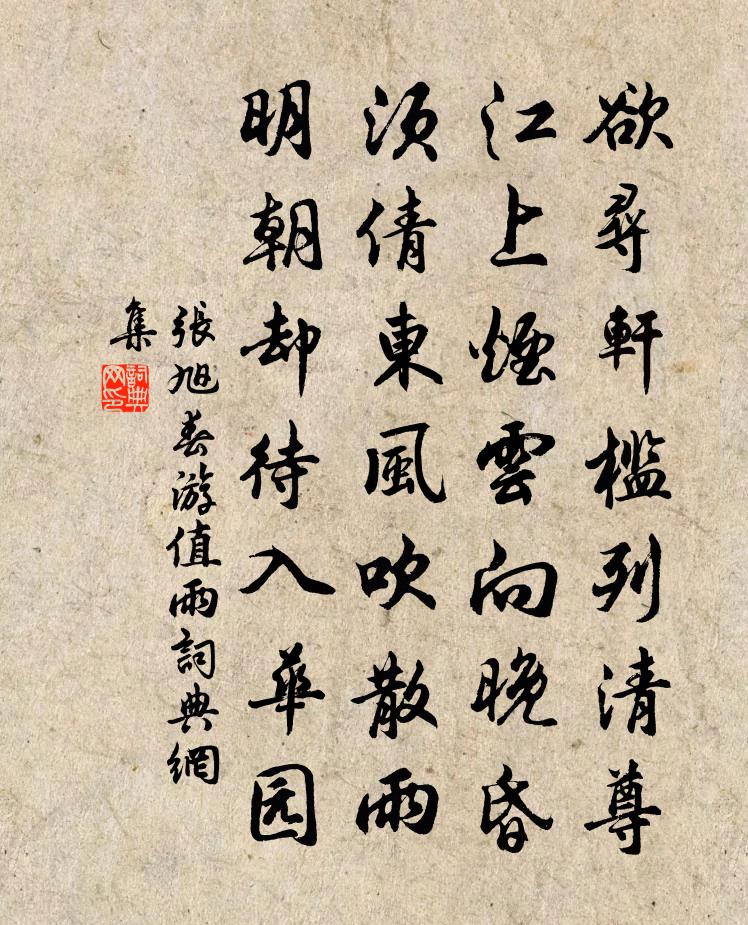 欲尋軒檻列清尊
江上煙雲向晚昏
須倩東風吹散雨
明朝却待入華园
張旭春游值雨詞典網
集
詞典
网印